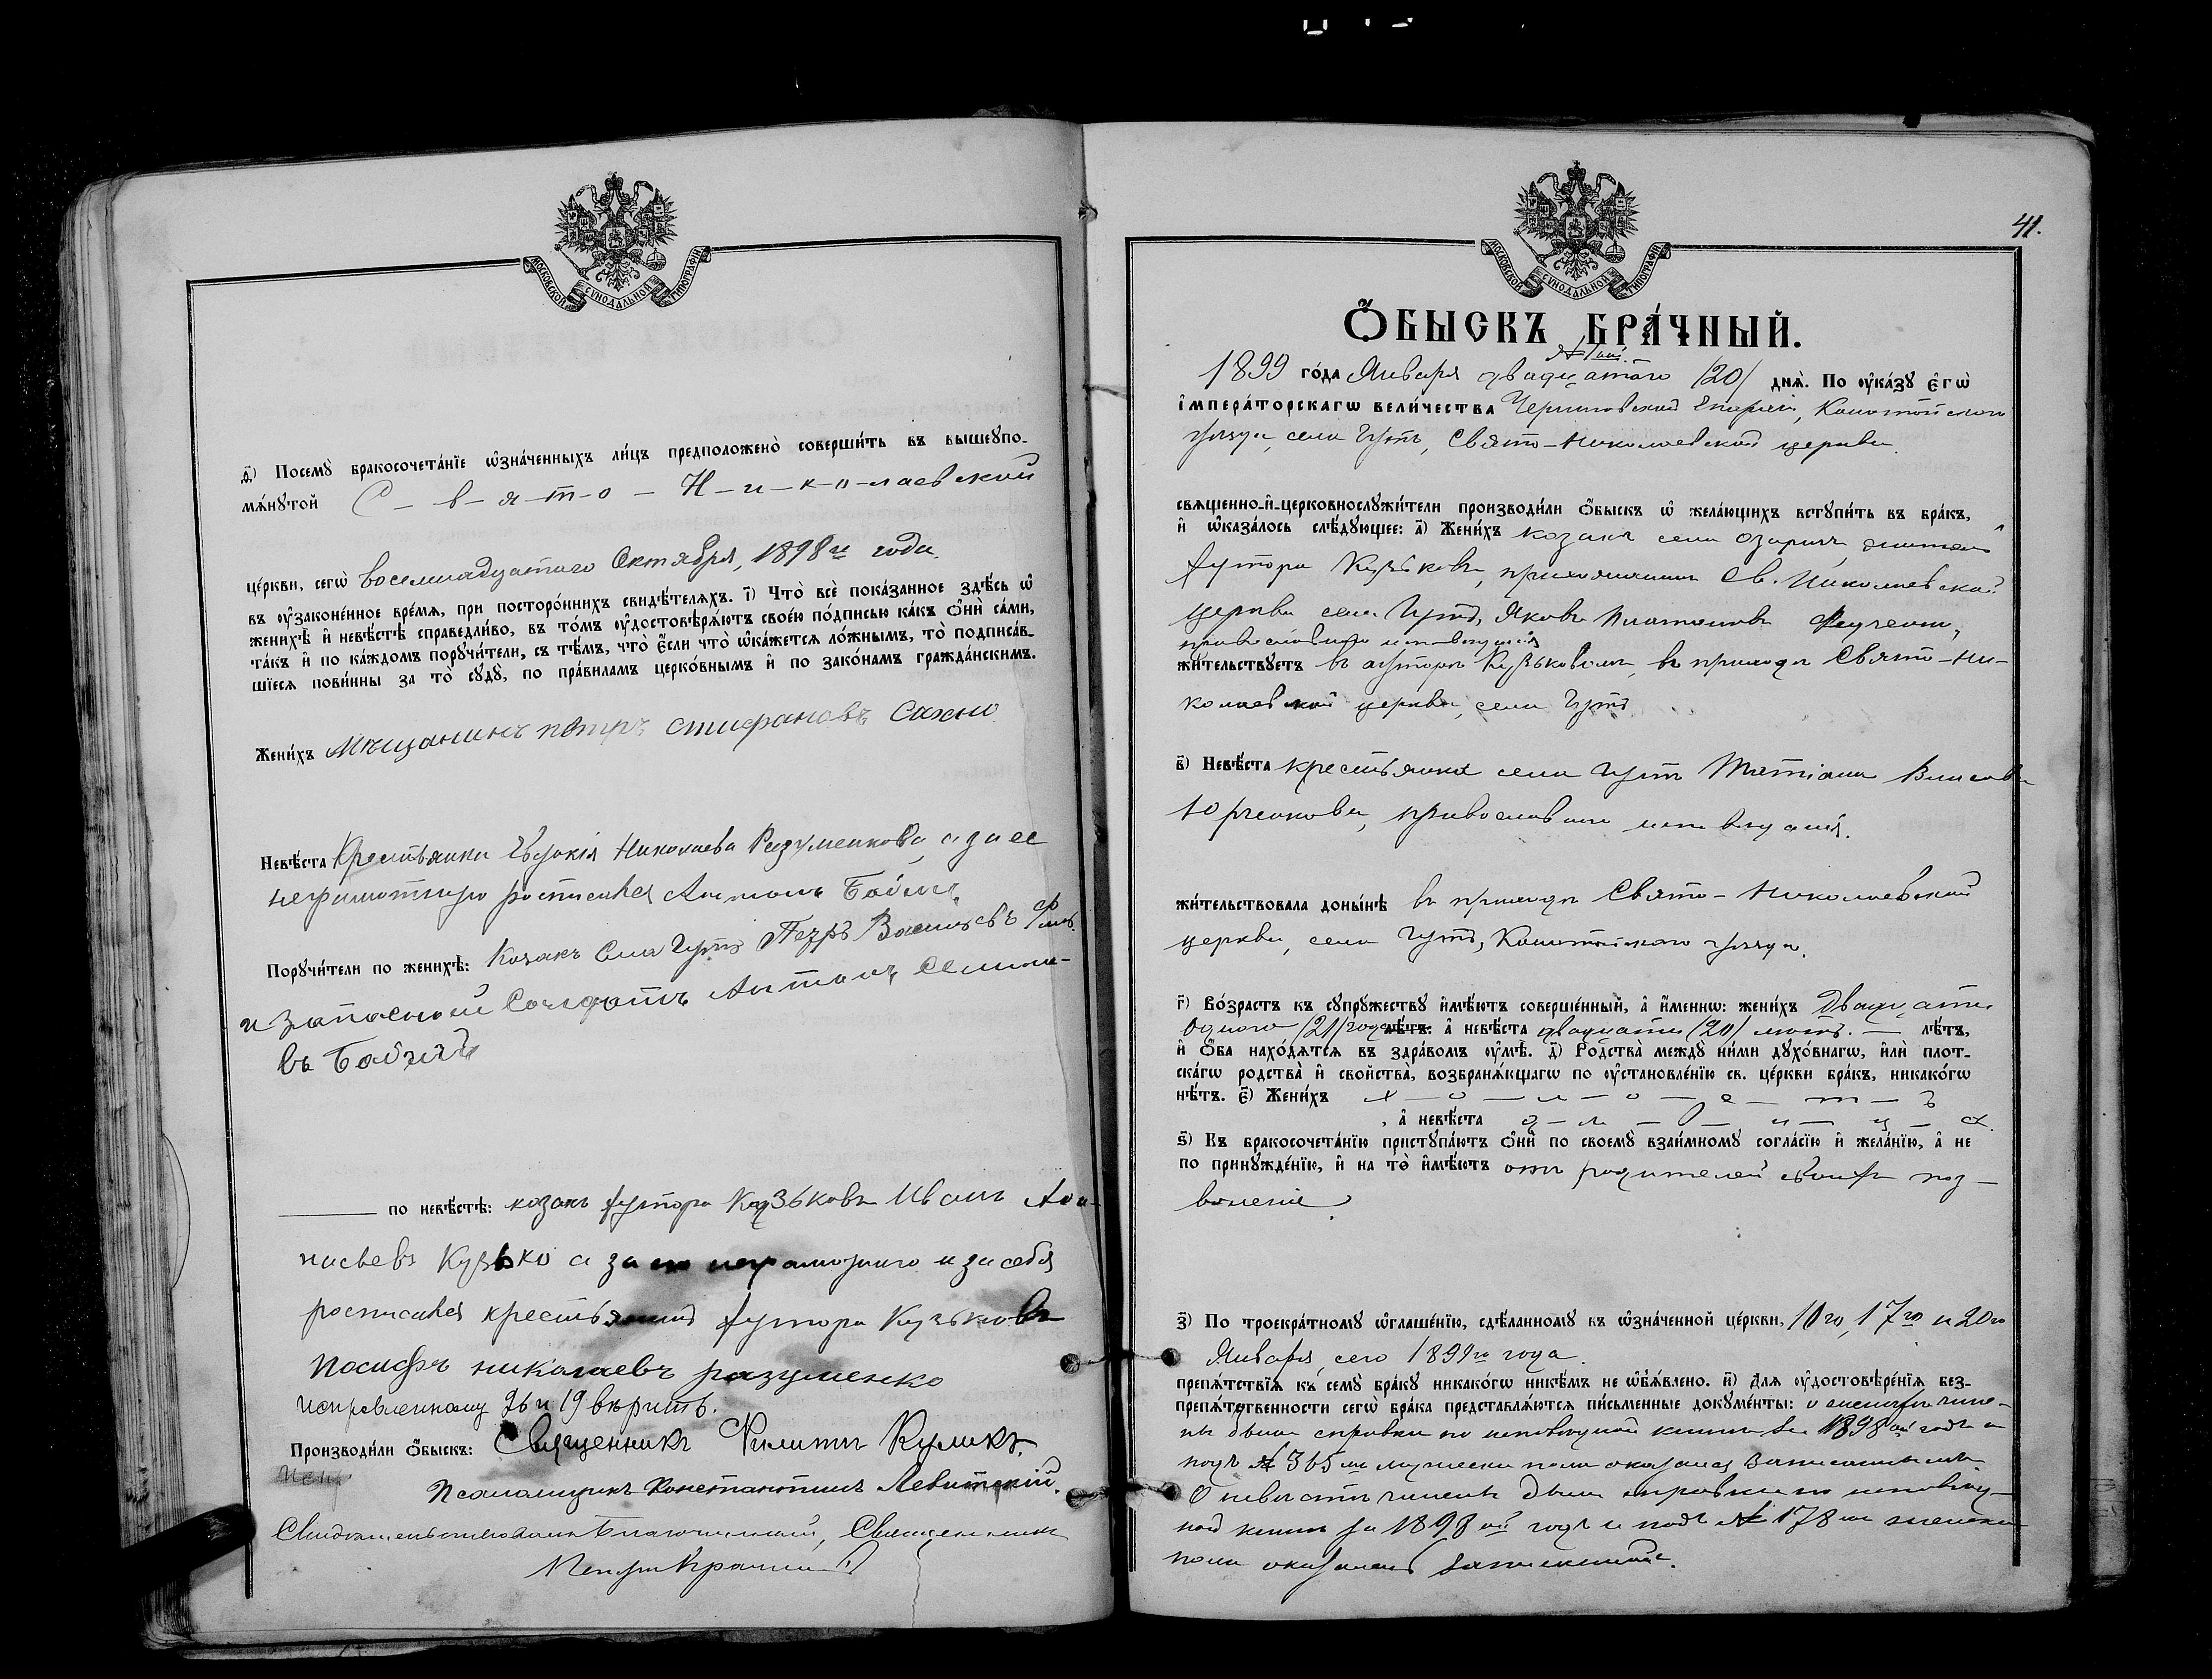 МОСКОВСКОЙ СУНОДАЛЬНОЙ ТИПОГРАФІИ
д҃) Посемꙋ̀ бракосочета́нїе ѡ҆зна́ченныхъ ли́цъ предположено̀ соверши́ть въ вышеꙋпо-
мѧ́нꙋтой С-в-я-т-о-Н-и-к-о-лаевской
це́ркви, сегѡ̀ восемнадцатаго Октября, 1898го года.
въ ᲂу҆зако́ненное вре́мѧ, при посторо́ннихъ свидѣ́телѧхъ. і҃) Что̀ всѐ пока́занное здѣ́сь ѡ҆
женихѣ̀ и҆ невѣ́стѣ справедли́во, въ то́мъ ᲂу҆достовѣрѧ́ютъ свое́ю по́дписью ка́къ ѻ҆нѝ са́ми,
та́къ и҆ по ка́ждомъ порꙋчи́тели, съ тѣ́мъ, что̀ є҆́сли что̀ ѡ҆ка́жетсѧ ло́жнымъ, то̀ подписа́в-
шїесѧ пови́нны за то̀ сꙋдꙋ̀, по пра́виламъ церко́внымъ и҆ по зако́намъ гражда́нскимъ.
Жени́хъ Мѣщанинъ петръ стифановъ Сахно
Невѣ́ста Крестьянка Евдокія Николаева Разуменкова, а за ее
неграмотную росписався Антонъ Бойчъ
Порꙋчи́тели по женихѣ̀: Козакъ Села Гутъ Петръ Васильевъ
и запасной Солдатъ Антонъ Семіоно-
въ Бойчъ
по невѣ́стѣ: козакъ хутора Кузьковъ Иванъ Аѳа-
насьевъ Кузько а за его неграмотного и за себя
росписався крестьянинъ хутора Кузьковъ
Иосифъ николаевъ разуменко
исправленному 9 и 19 вѣрить.
Производи́ли ѻ҆́быскъ: Священникъ Филиппъ Куликъ.
Псаломщикъ Константинъ Левитскій.
Свидѣтельствовалъ Благочинный, Священникъ
Петръ
41.
МОСКОВСКОЙ СУНОДАЛЬНОЙ ТИПОГРАФІИ
Ѻ҆́БЫСКЪ БРА́ЧНЫЙ.
1899 го́да Января двадцатаго /20/ днѧ̀. По ᲂу҆ка́зꙋ є҆гѡ̀
і҆мпера́торскагѡ вели́чества Черниговской Епархіи, Конотопскаго
уѣзда, села Гутъ, Свято-Николаевской церкви.
свѧщенно-и҆-церковнослꙋжи́тели производи́ли ѻ҆́быскъ ѡ҆ жела́ющихъ встꙋпи́ть въ бра́къ,
и҆ ѡ҆каза́лось слѣ́дꙋющее: а҃) Жени́хъ козакъ села Озаричъ, житель
хутора Кузьковъ, прихожанинъ Св. Николаевской
церкви села Гутъ, Яковъ Платоновъ
православнаго исповѣданія
жи́тельствꙋетъ въ хуторѣ Кузьковомъ, въ приходѣ Свято-Ни-
колаевской церкви, села Гутъ
в҃) Невѣ́ста крестьянка села Гутъ Татіана Власова
Юрченкова, православнаго исповѣданія.
жи́тельствовала доны́нѣ въ приходѣ Свято-Николаевской
церкви, села Гутъ, Конотопскаго уѣзда.
г҃) Во́зрастъ къ сꙋпрꙋ́жествꙋ и҆мѣ́ютъ соверше́нный, а҆ и҆́меннѡ: жени́хъ Двадцати
одного /21/ года лѣ́тъ: а҆ невѣ́ста двадцати /20/ лѣтъ. — лѣ́тъ,
и҆ ѻ҆́ба нахо́дѧтсѧ въ здра́вомъ ᲂу҆мѣ̀. д҃) Родства̀ междꙋ̀ ни́ми дꙋхо́внагѡ, и҆лѝ плот-
ска́гѡ родства̀ и҆ сво́йства, возбранѧ́ющагѡ по ᲂу҆становле́нїю св. це́ркви бра́къ, никако́гѡ
нѣ́тъ. є҃) Жени́хъ х—о—л—о—с—т—ъ
, а҆ невѣ́ста д—ѣ—в—и—ц—а.
ѕ҃) Къ бракосочета́нїю пристꙋпа́ютъ ѻ҆нѝ по своемꙋ̀ взаи́мномꙋ согла́сїю и҆ жела́нїю, а҆ не
по принꙋжде́нїю, и҆ на то̀ и҆мѣ́ютъ отъ родителей своихъ поз-
воленіе.
з҃) По троекра́тномꙋ ѡ҆глаше́нїю, сдѣ́ланномꙋ въ ѡ҆зна́ченной це́ркви, 10го, 17го и 20го
Января, сего 1899го года.
препѧ́тствїѧ къ семꙋ̀ бра́кꙋ никако́гѡ никѣ́мъ не ѡ҆б̾ѧ́влено. и҃) Длѧ ᲂу҆достовѣре́нїѧ без-
препѧ́тственности сегѡ̀ бра́ка представлѧ́ютсѧ пи́сьменные докꙋме́нты: о женихѣ чине-
на была справка по исповѣдной книгѣ за 1898ой годъ и
подъ № 365мъ мужеска пола оказался записаннымъ.
О невѣстѣ чинена была справка по исповѣд-
ной книгѣ за 1898ой годъ и подъ № 178мъ женска
пола оказалась записанной.